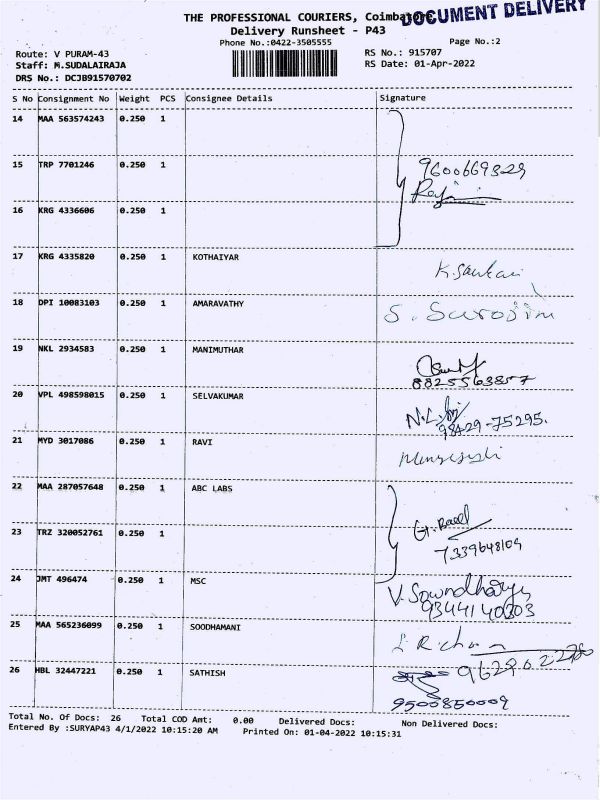 THE PROFESSIONAL COURIERS, Coimbatore
DOCUMENT DELIVERY
Delivery Runsheet - P43
Phone No.:0422-3505555
Page No.:2
Route: V PURAM-43
RS No.: 915707
Staff: M.SUDALAIRAJA
RS Date: 01-Apr-2022
DRS No.: DCJB91570702
S No Consignment No Weight PCS Consignee Details Signature
14 MAA 563574243 0.250 1
15 TRP 7701246 0.250 1 9600669329
Raji
16 KRG 4336606 0.250 1
17 KRG 4335820 0.250 1 KOTHAIYAR
K. Sankari
18 DPI 10083103 0.250 1 AMARAVATHY S. Sarojini
19 NKL 2934583 0.250 1 MANIMUTHAR
8825563857
20 VPL 498598015 0.250 1 SELVAKUMAR
98429-75295.
21 MYD 3017086 0.250 1 RAVI
22 MAA 287057648 0.250 1 ABC LABS
23 TRZ 320052761 0.250 1
7339648109
24 JMT 496474 0.250 1 MSC V. Sowndharya
9344140303
25 MAA 565236099 0.250 1 SOODHAMANI
26 HBL 32447221 0.250 1 SATHISH
9500850009
Total No. Of Docs: 26 Total COD Amt: 0.00 Delivered Docs: Non Delivered Docs:
Entered By :SURYAP43 4/1/2022 10:15:20 AM Printed On: 01-04-2022 10:15:31